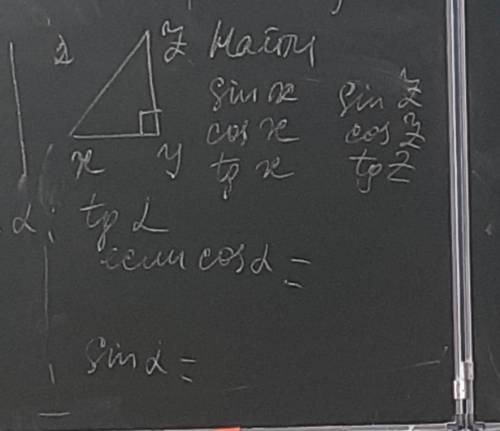 2 Z Найти
sin x sin Z
cos x cos Z
x y tg x tg Z
α: tg α
если cos α =
sin α =